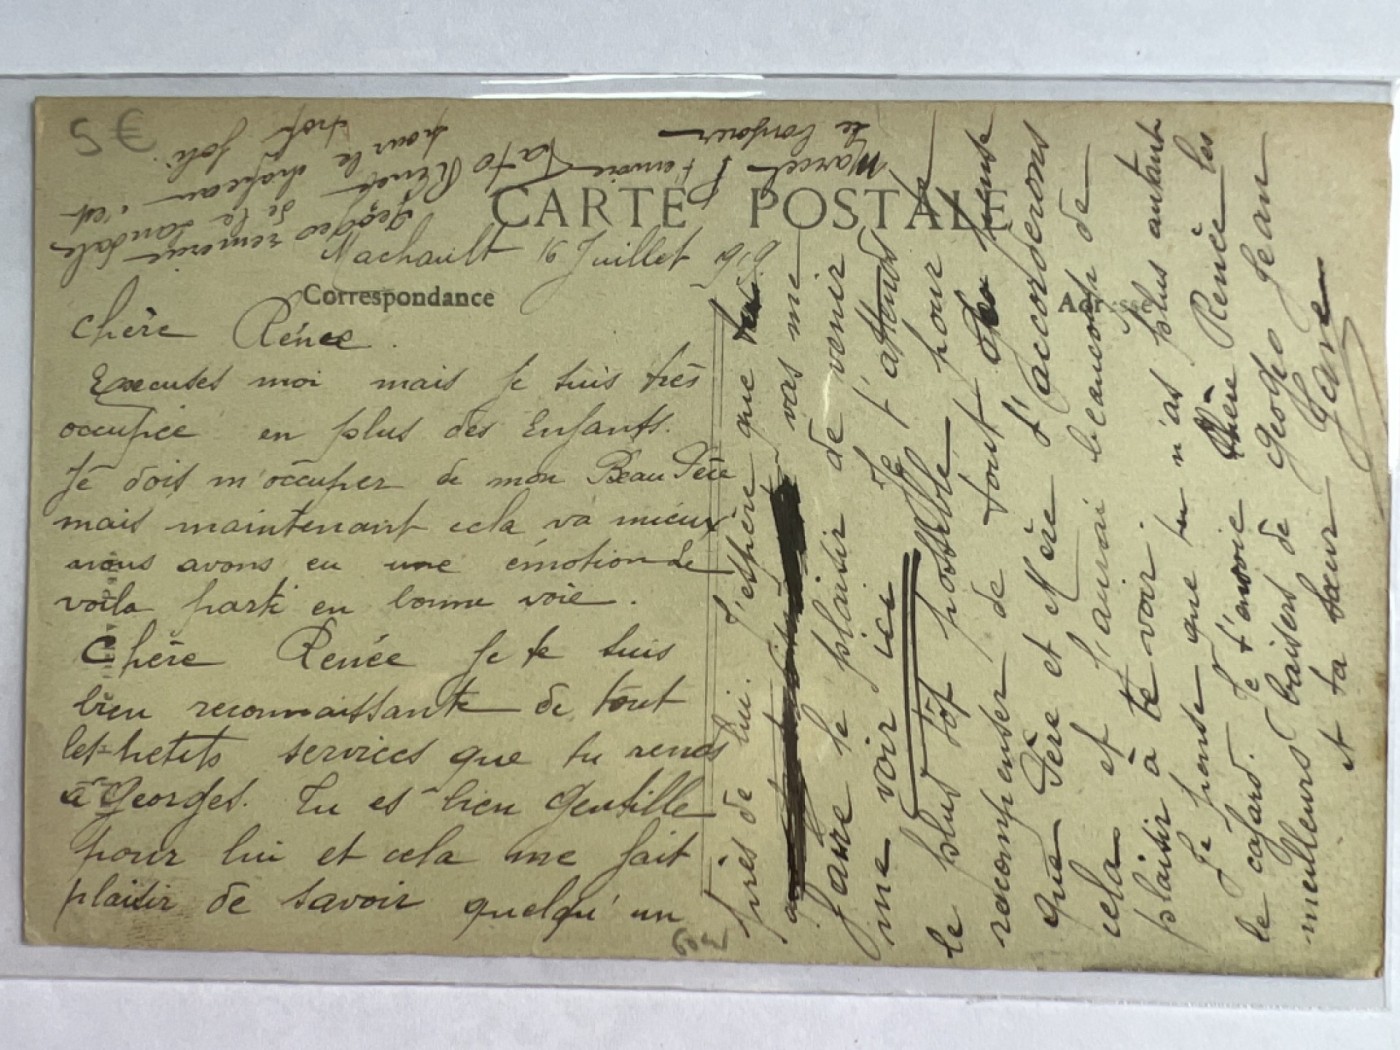 5 €
CARTE POSTALE
Correspondance
Adresse
Machault 16 Juillet 1916
Chère Rénée
Excuses moi mais je suis très
occupée en plus des Enfants.
Je dois m'occuper de mon Beau Père
mais maintenant cela va mieux
nous avons eu une émotion le
voila parti en bonne voie.
Chère Renée je te suis
bien reconnaissante de tout
les petits services que tu rends
à Georges. Tu es bien gentille
pour lui et cela me fait
plaisir de savoir quelqu'un
près de lui. J'espère que tu
vas me
faire le plaisir de venir
me voir ici Je t'attends
le plus tôt possible pour te
recompenser de tout je pense
que Père et Mère t'accorderons
cela et j'aurai beaucoup de
plaisir à te voir.
Je pense que tu n'as plus autant
le cafard. Je t'envoie chère Renée les
meilleurs baisers de Geoges Jean
et ta sœur
Marcel t'envoie
le bonjour
Georges remercie Tato Renée
de la sandale
pour le chapeau c'est
trop joli.